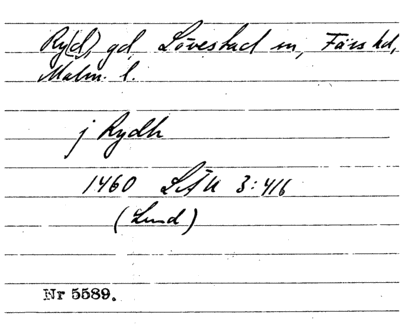 Ry(d), gd, Lövestad sn, Färs hd,
Malm. l.
j Rydh
1460 LÄU 3:416
(Lund)
Nr 5589.